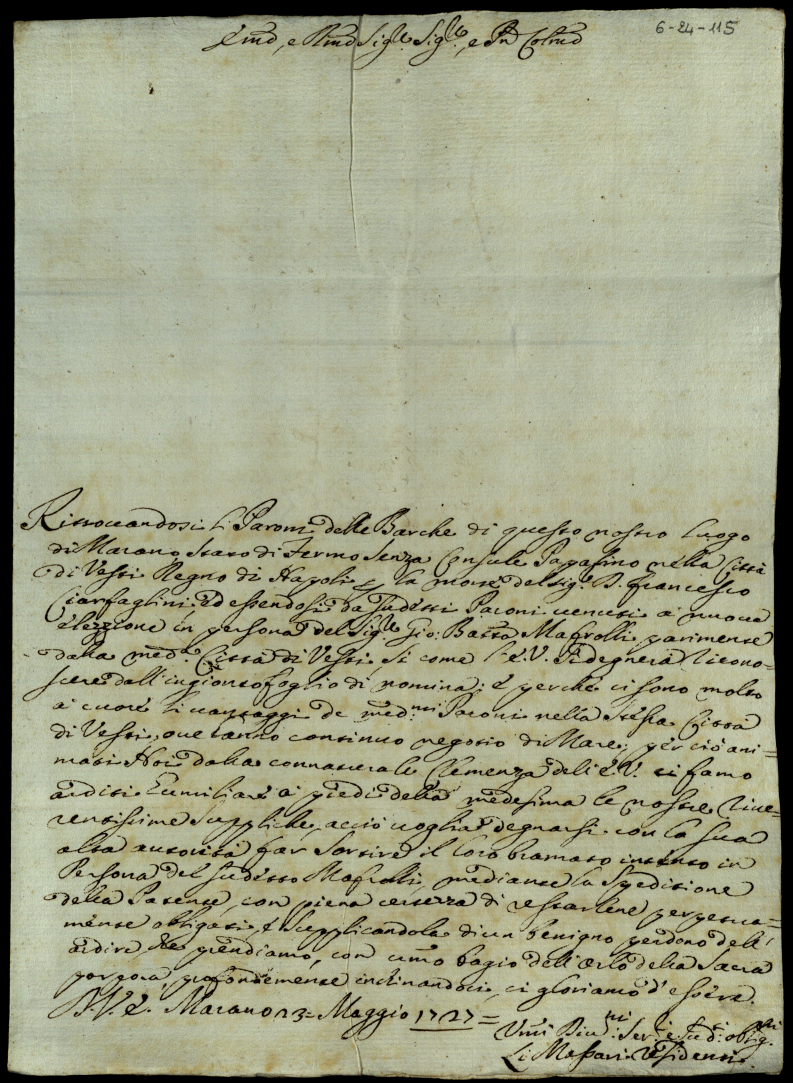 6-24-115
Emo, e Rmo Sigre Sigre, e Pn Colmo
Ritrovandosi li Paroni delle Barche di questo nostro luogo
di Marano Stato di Fermo senza Console Papalino nella Città
di Vesti Regno di Napoli p la morte del Sigr D. Francesco
Ciarfaglini, ed essendosi da sudetti Paroni venuti a nuova
elezzione in persona del Sigre Gio: Batta Mafrolli parimente
della medma Città di Vesti, si come l'E.V. si degnerà ricono-
scere dall'ingionto foglio di nomina; e perche ci sono molto
a cuore li vantaggi de medmi Paroni nella stessa Città
di Vesti, ove fanno continuo negozio di Mare; per ciò ani-
mati Noi dalla connaturale Clemenza dell'E.V. ci famo
arditi umiliare a piedi della medesima le nostre rive-
rentissime suppliche, acciò voglia degnarsi con la sua
alta autorità far sortire il loro bramato intento in
Persona del sudetto Mafrolli, mediante la spedizione
della Patente, con piena certezza di restarlene perpetua-
mente obligati, e supplicandola di un benigno perdono dell'
ardire, che prendiamo, con umo bagio dell'orlo della Sacra
porpora, profondemente inchinandoci, ci gloriamo d'essere
D.V.E. Marano 23 Maggio 1727 =
Umi Divmi Seri e Sudi obligmi
Li Massari residenti